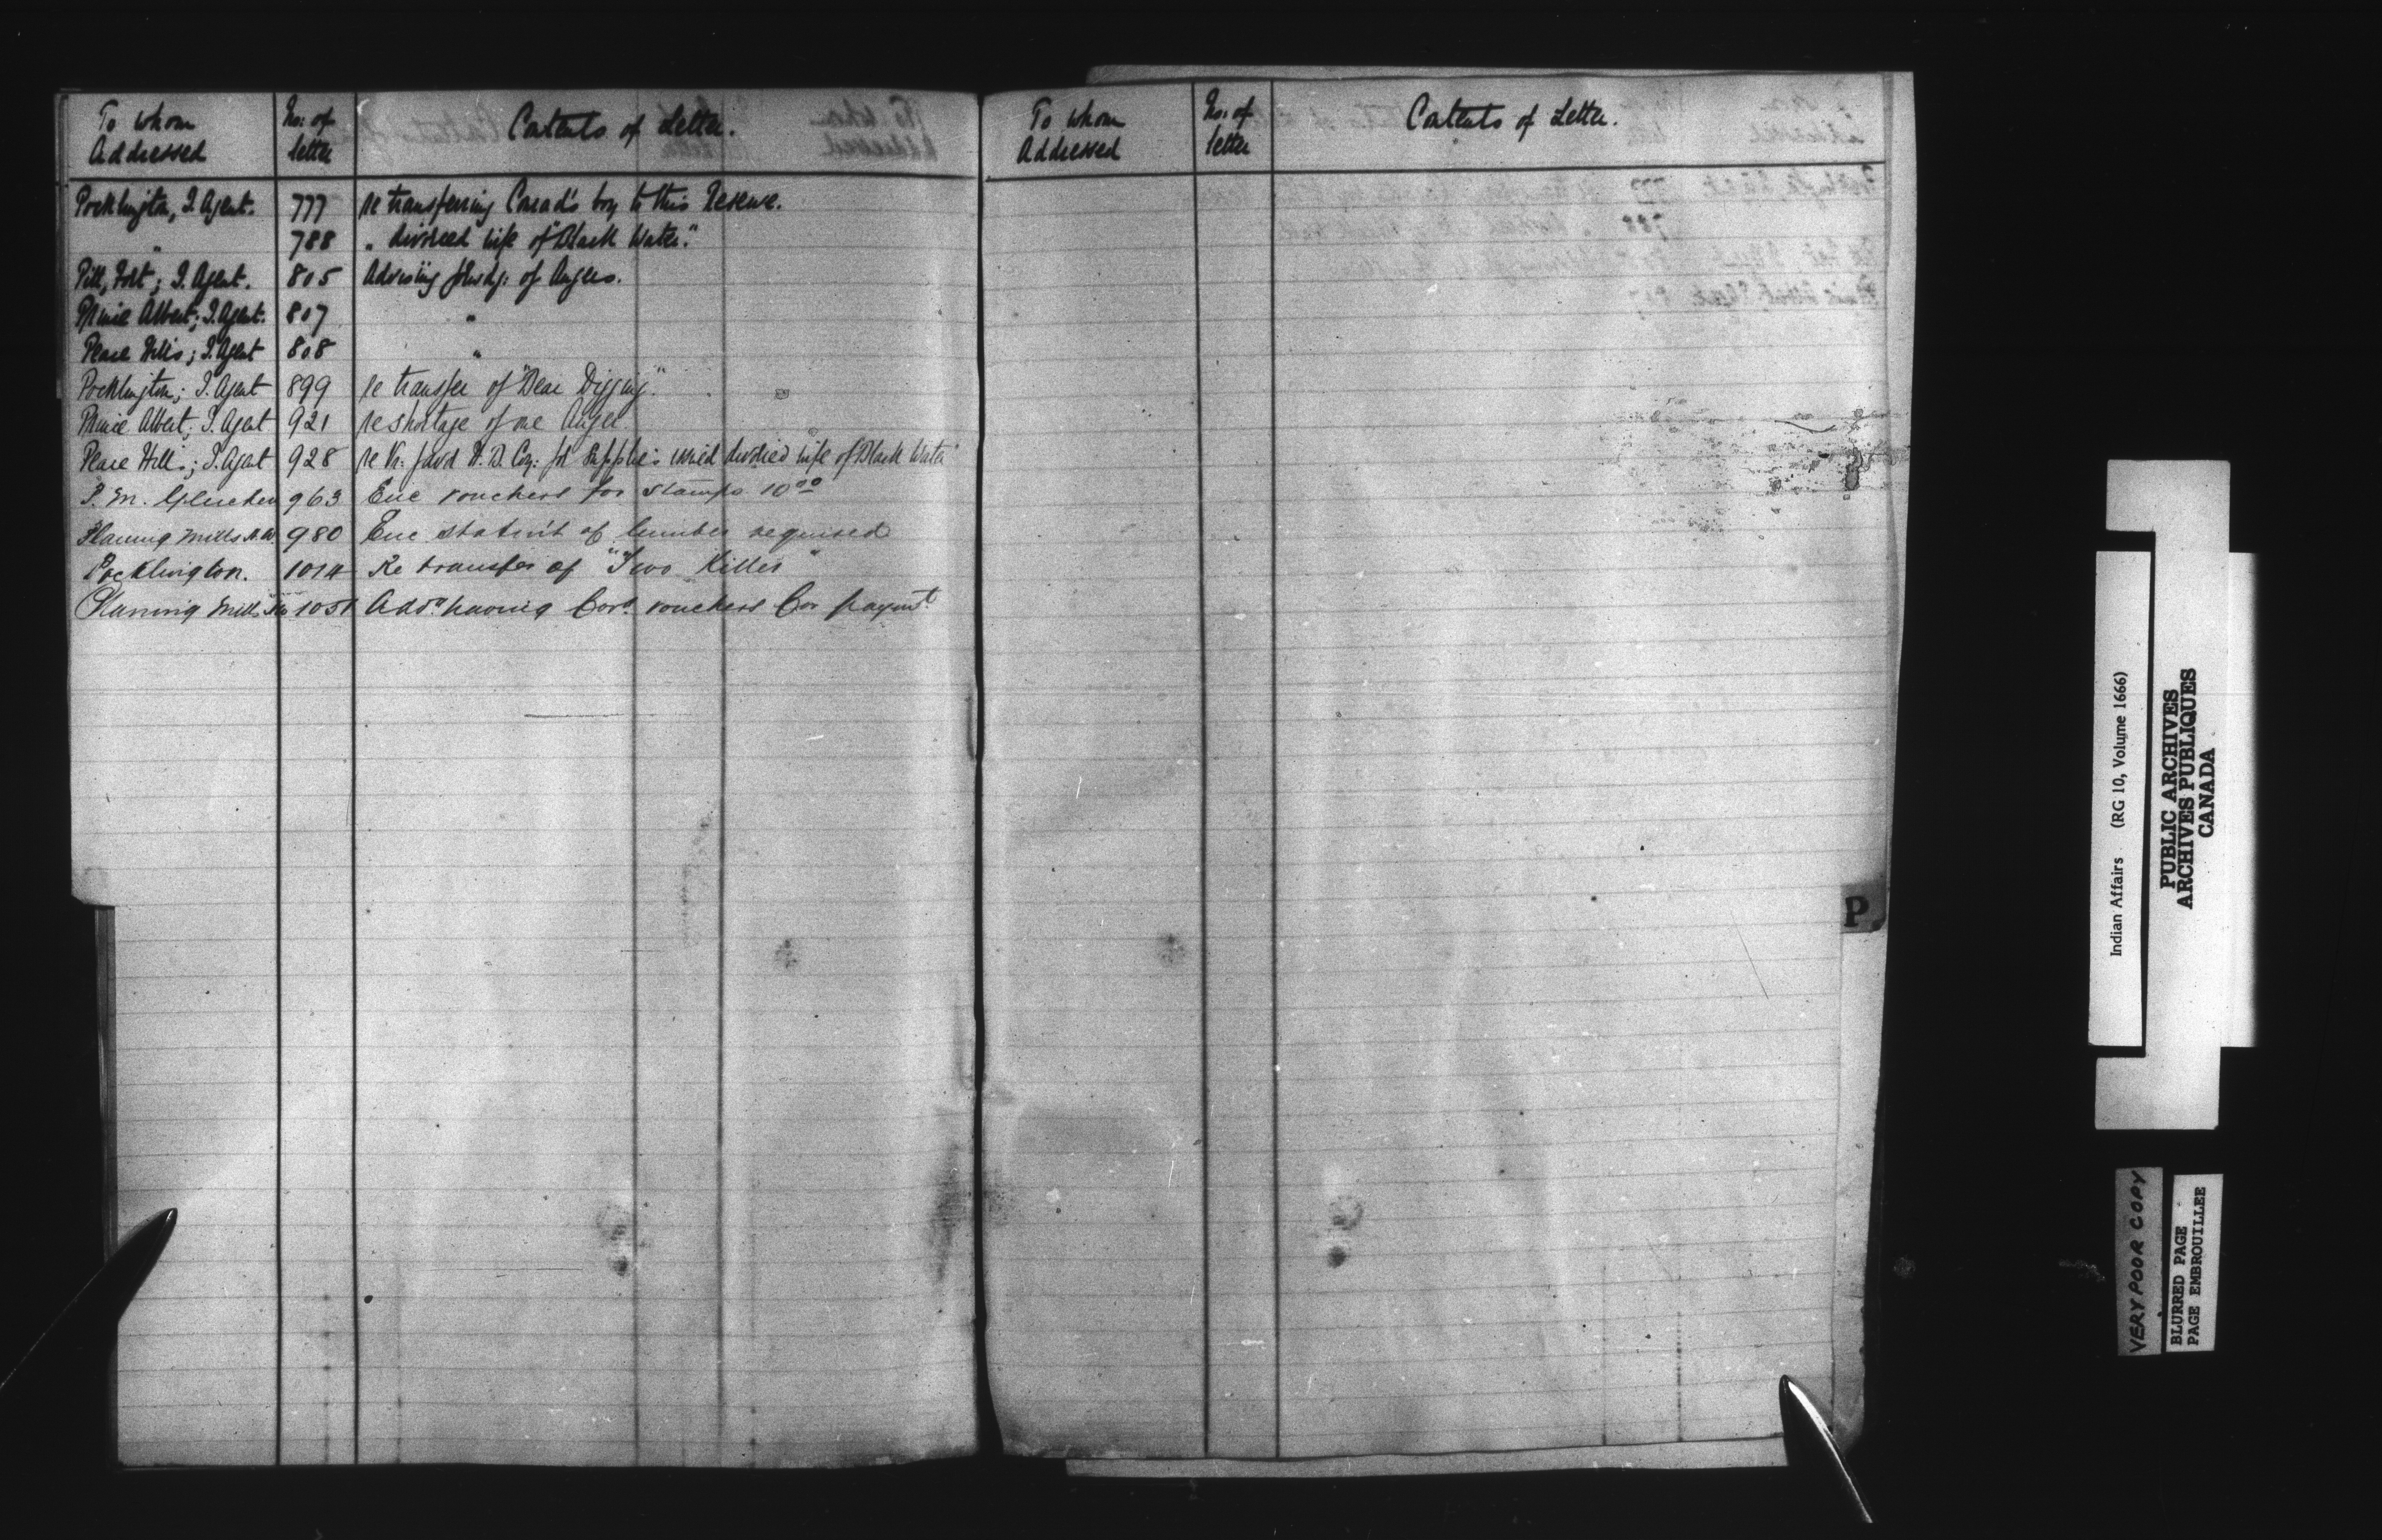 To whom Addressed | No: of letter | Contents of Letter.
Pocklington, I. Agent. | 777 | re transferring Conrad's boy to this Reserve.
" | 788 | " divorced wife of "Black Water."
Pitt, Fort; I. Agent. | 805 | Advising forwdg: of Augers.
Prince Albert; I. Agent. | 807 | "
Peace Hills; I. Agent | 808 | "
Pocklington; I. Agent | 899 | re transfer of "Bear Digging".
Prince Albert; I. Agent | 921 | re shortage of one Auger.
Peace Hills; I. Agent | 928 | re Vr: favor H. B. Coy: for supplies divorced wife of Black Water
P. M. Gleichen | 963 | Enc vouchers for stamps 10 00
Planing Mills | 980 | Enc statm't of lumber required
Pocklington. | 1014 | Re transfer of "Two Killer"
Planing Mills | 1051 | Adv. having vouchers for paymt.
To whom Addressed | No. of letter | Contents of Letter.
P
Indian Affairs (RG 10, Volume 1666)
PUBLIC ARCHIVES
ARCHIVES PUBLIQUES
CANADA
VERY POOR COPY
BLURRED PAGE
PAGE EMBROUILLEE